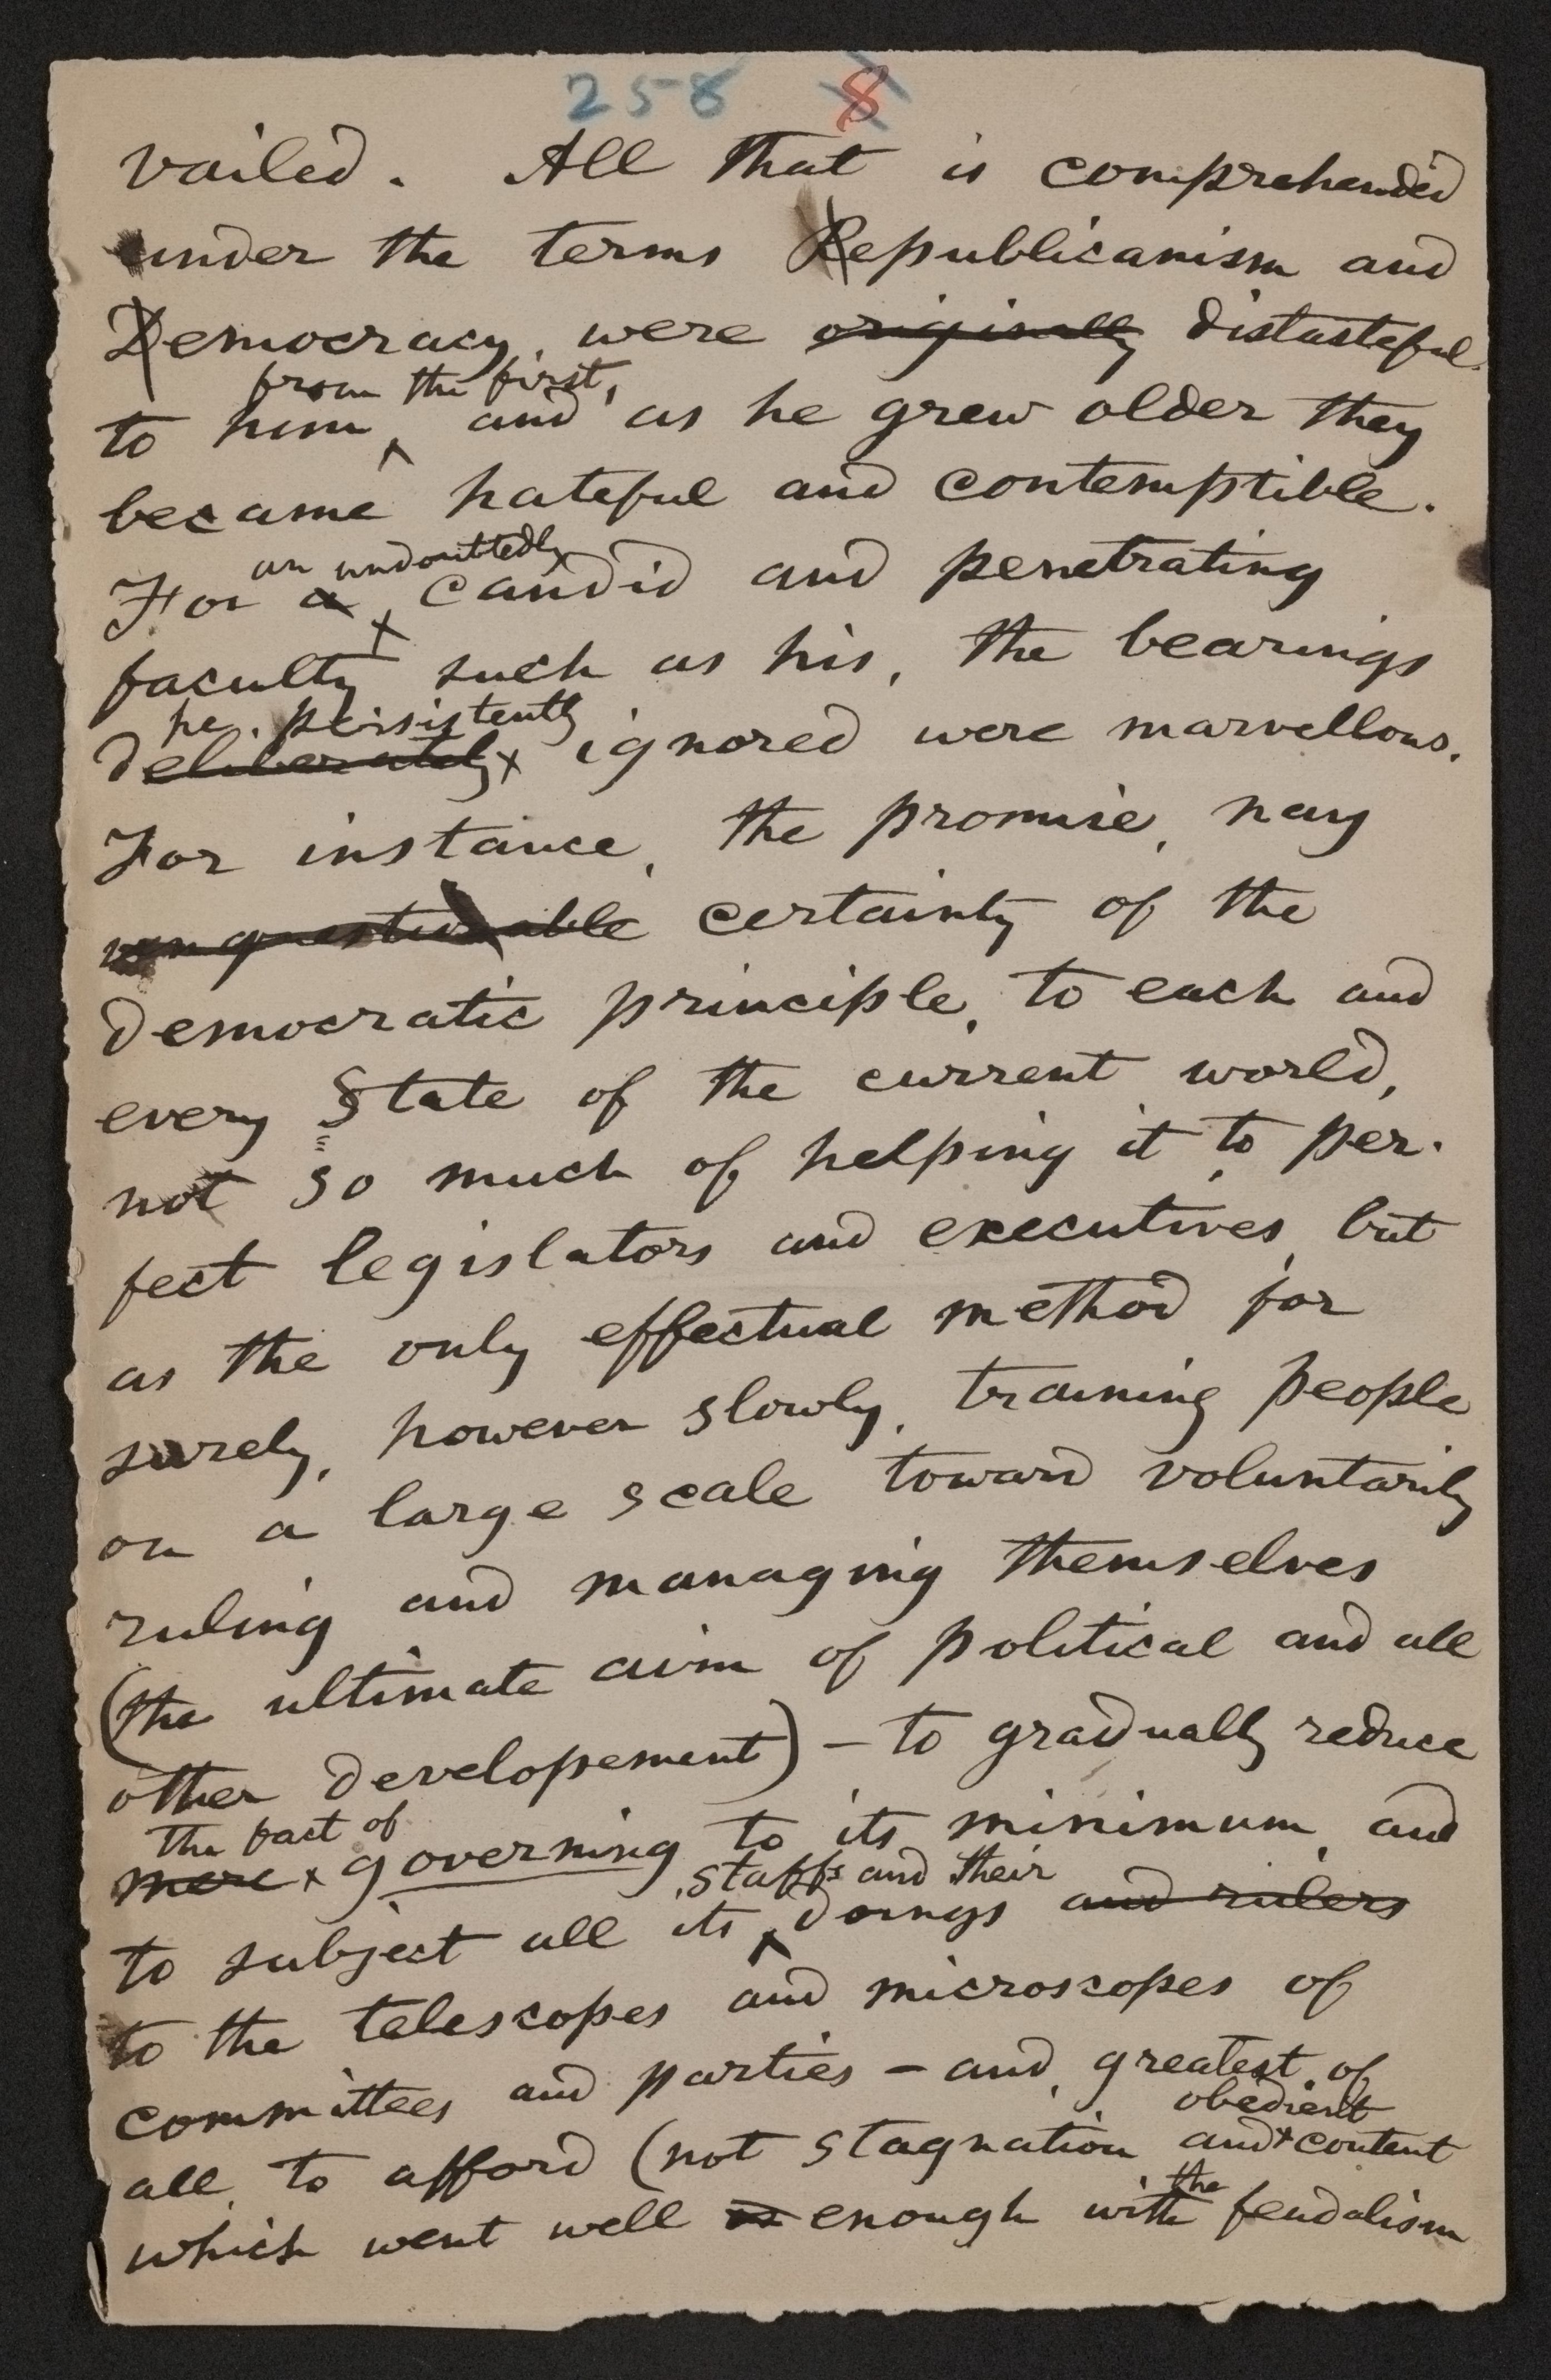 258 8
vailed. All that is comprehended
under the terms Republicanism and
Democracy, were originally distasteful
from the first,
to him, and as he grew older they
became hateful and contemptible.
an undoubtedly
For a candid and penetrating
faculty such as his, the bearings
he persistently
deliberately ignored were marvellous.
For instance, the promise, nay
unquestionable certainty of the
democratic principle, to each and
every State of the current world,
not so much of helping it to per-
fect legislators and executives, but
as the only effectual method for
surely, however slowly, training people
on a large scale toward voluntarily
ruling and managing themselves
(the ultimate aim of political and all
other developement) – to gradually reduce
the fact of
mere governing to its minimum, and
staffs and their
to subject all its doings and rulers
to the telescopes and microscopes of
committees and parties – and, greatest of
obedient
all, to afford (not stagnation and content
the
which went well enough with feudalism